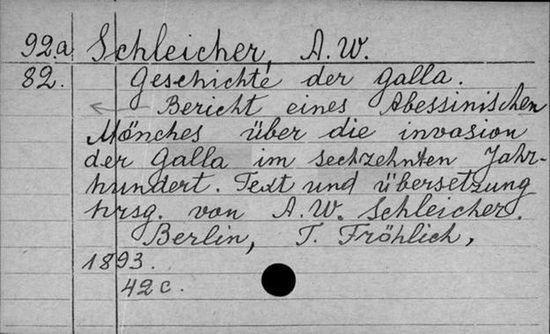 92.a Schleicher, A.W.
82. Geschichte der Galla.
Bericht eines Abessinischen
Mönches über die invasion
der Galla im sechzehnten Jahr-
hundert. Text und übersetzung
hrsg. von A.W. Schleicher.
Berlin, T. Fröhlich,
1893.
42c.